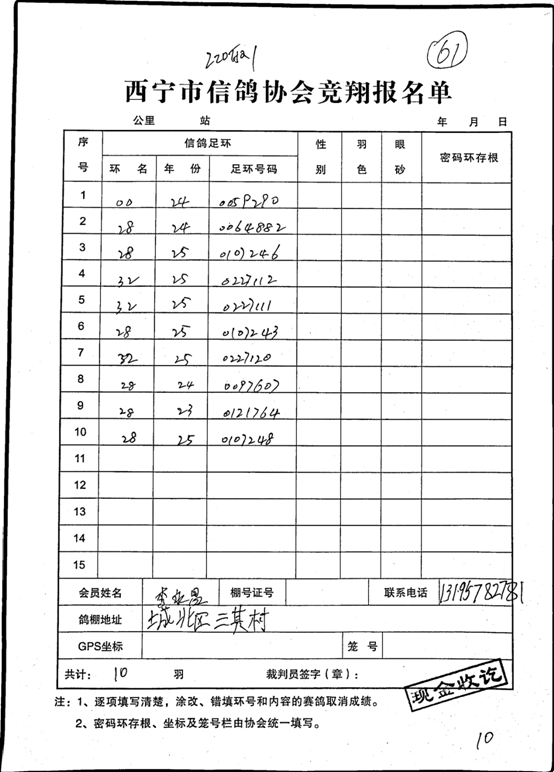 61
西宁市信鸽协会竞翔报名单
公里 站 年 月 日
序号 信鸽足环 性别 羽色 眼砂 密码环存根
环 名 年 份 足环号码
1 00 24 0059290
2 28 24 0064882
3 28 25 0107246
4 32 25 0227112
5 32 25 0227111
6 28 25 0107243
7 32 25 0227120
8 28 24 0097607
9 28 23 0121764
10 28 25 0107248
11
12
13
14
15
会员姓名 李 棚号证号 联系电话 13195782781
鸽棚地址 城北区三其村
GPS坐标 笼 号
共计: 10 羽 裁判员签字(章):
现金收讫
注:1、逐项填写清楚,涂改、错填环号和内容的赛鸽取消成绩。
2、密码环存根、坐标及笼号栏由协会统一填写。
10